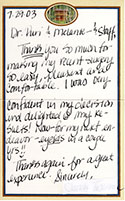 7.29.03
Dr. Hun & Melanie - & Staff,
Thank you so much for
making my recent surgery
so easy, pleasant and
comfortable. I was very
confident in my decision
and delighted my re-
sults! Now for my next en-
deavor - eyes in a couple
yrs!!
Thanks again for a great
experience. Sincerely,